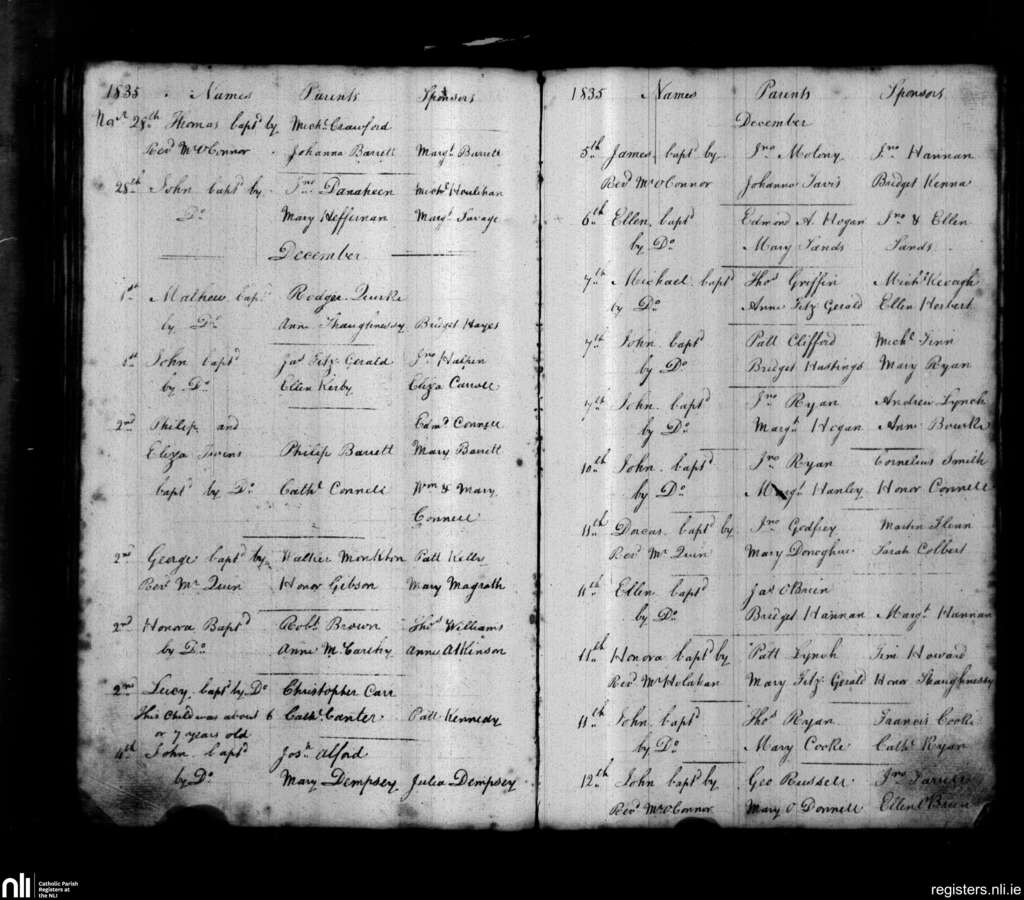 1835 Names Parents Sponsors
Novr 28th Thomas baptd by Michl Crawford
Revd Mr O'Connor Johanna Barrett Margt Barrett
28th John baptd by Jno Danaheen Michl Houlihan
Do Mary Heffernan Margt Savage
December
1st Mathew bapd Rodger Quirke
by Do Anne Shaughnessy Bridget Hayes
1st John baptd Jas Fitz Gerald Jno Halpin
by Do Ellen Kirby Eliza Carroll
2nd Philip and Edmd Connell
Eliza Twins Philip Barrett Mary Barrett
baptd by Do Cathe Connell Wm & Mary
Connell
2nd George baptd by Walter Monkton Patt Kelly
Revd Mr Quin Honor Gibson Mary Magrath
2nd Honora Baptd Robt Brown Thos Williams
by Do Anne McCarthy Anne Atkinson
2nd Lucy baptd by Do Christopher Carr
This child was about 6 Cathe Canter Patt Kennedy
or 7 years old
4th John baptd Josh Alford
by Do Mary Dempsey Julia Dempsey
1835 Names Parents Sponsors
December
5th James baptd by Jno Molony Jno Hannan
Revd Mr O'Connor Johanna Tarvis Bridget Kenna
6th Ellen baptd Edmond A. Hogan Jno & Ellen
by Do Mary Sands Sands
7th Michael baptd Thos Griffin Michl Keough
by Do Anne Fitz Gerald Ellen Herbert
7th John baptd Patt Clifford Michl Finn
by Do Bridget Hastings Mary Ryan
7th John baptd Jno Ryan Andrew Lynch
by Do Margt Hogan Anne Bourke
10th John baptd Jno Ryan Cornelius Smith
by Do Margt Hanley Honor Connell
11th Dorcas baptd by Jno Godfrey Martin Glenn
Revd Mr Quin Mary Donoghue Sarah Colbert
11th Ellen baptd Jas O'Brien
by Do Bridget Hannan Margt Hannan
11th Honora baptd by Patt Lynch Tim Howard
Revd Mr Holahan Mary Fitz Gerald Honor Shaughnessy
11th John baptd Thos Ryan Francis Cooke
by Do Mary Cooke Cathe Ryan
12th John baptd by Geo Russell Jno Farrell
Revd Mr O'Connor Mary O'Donnell Ellen O'Brien
nli Catholic Parish
Registers at
the NLI
registers.nli.ie